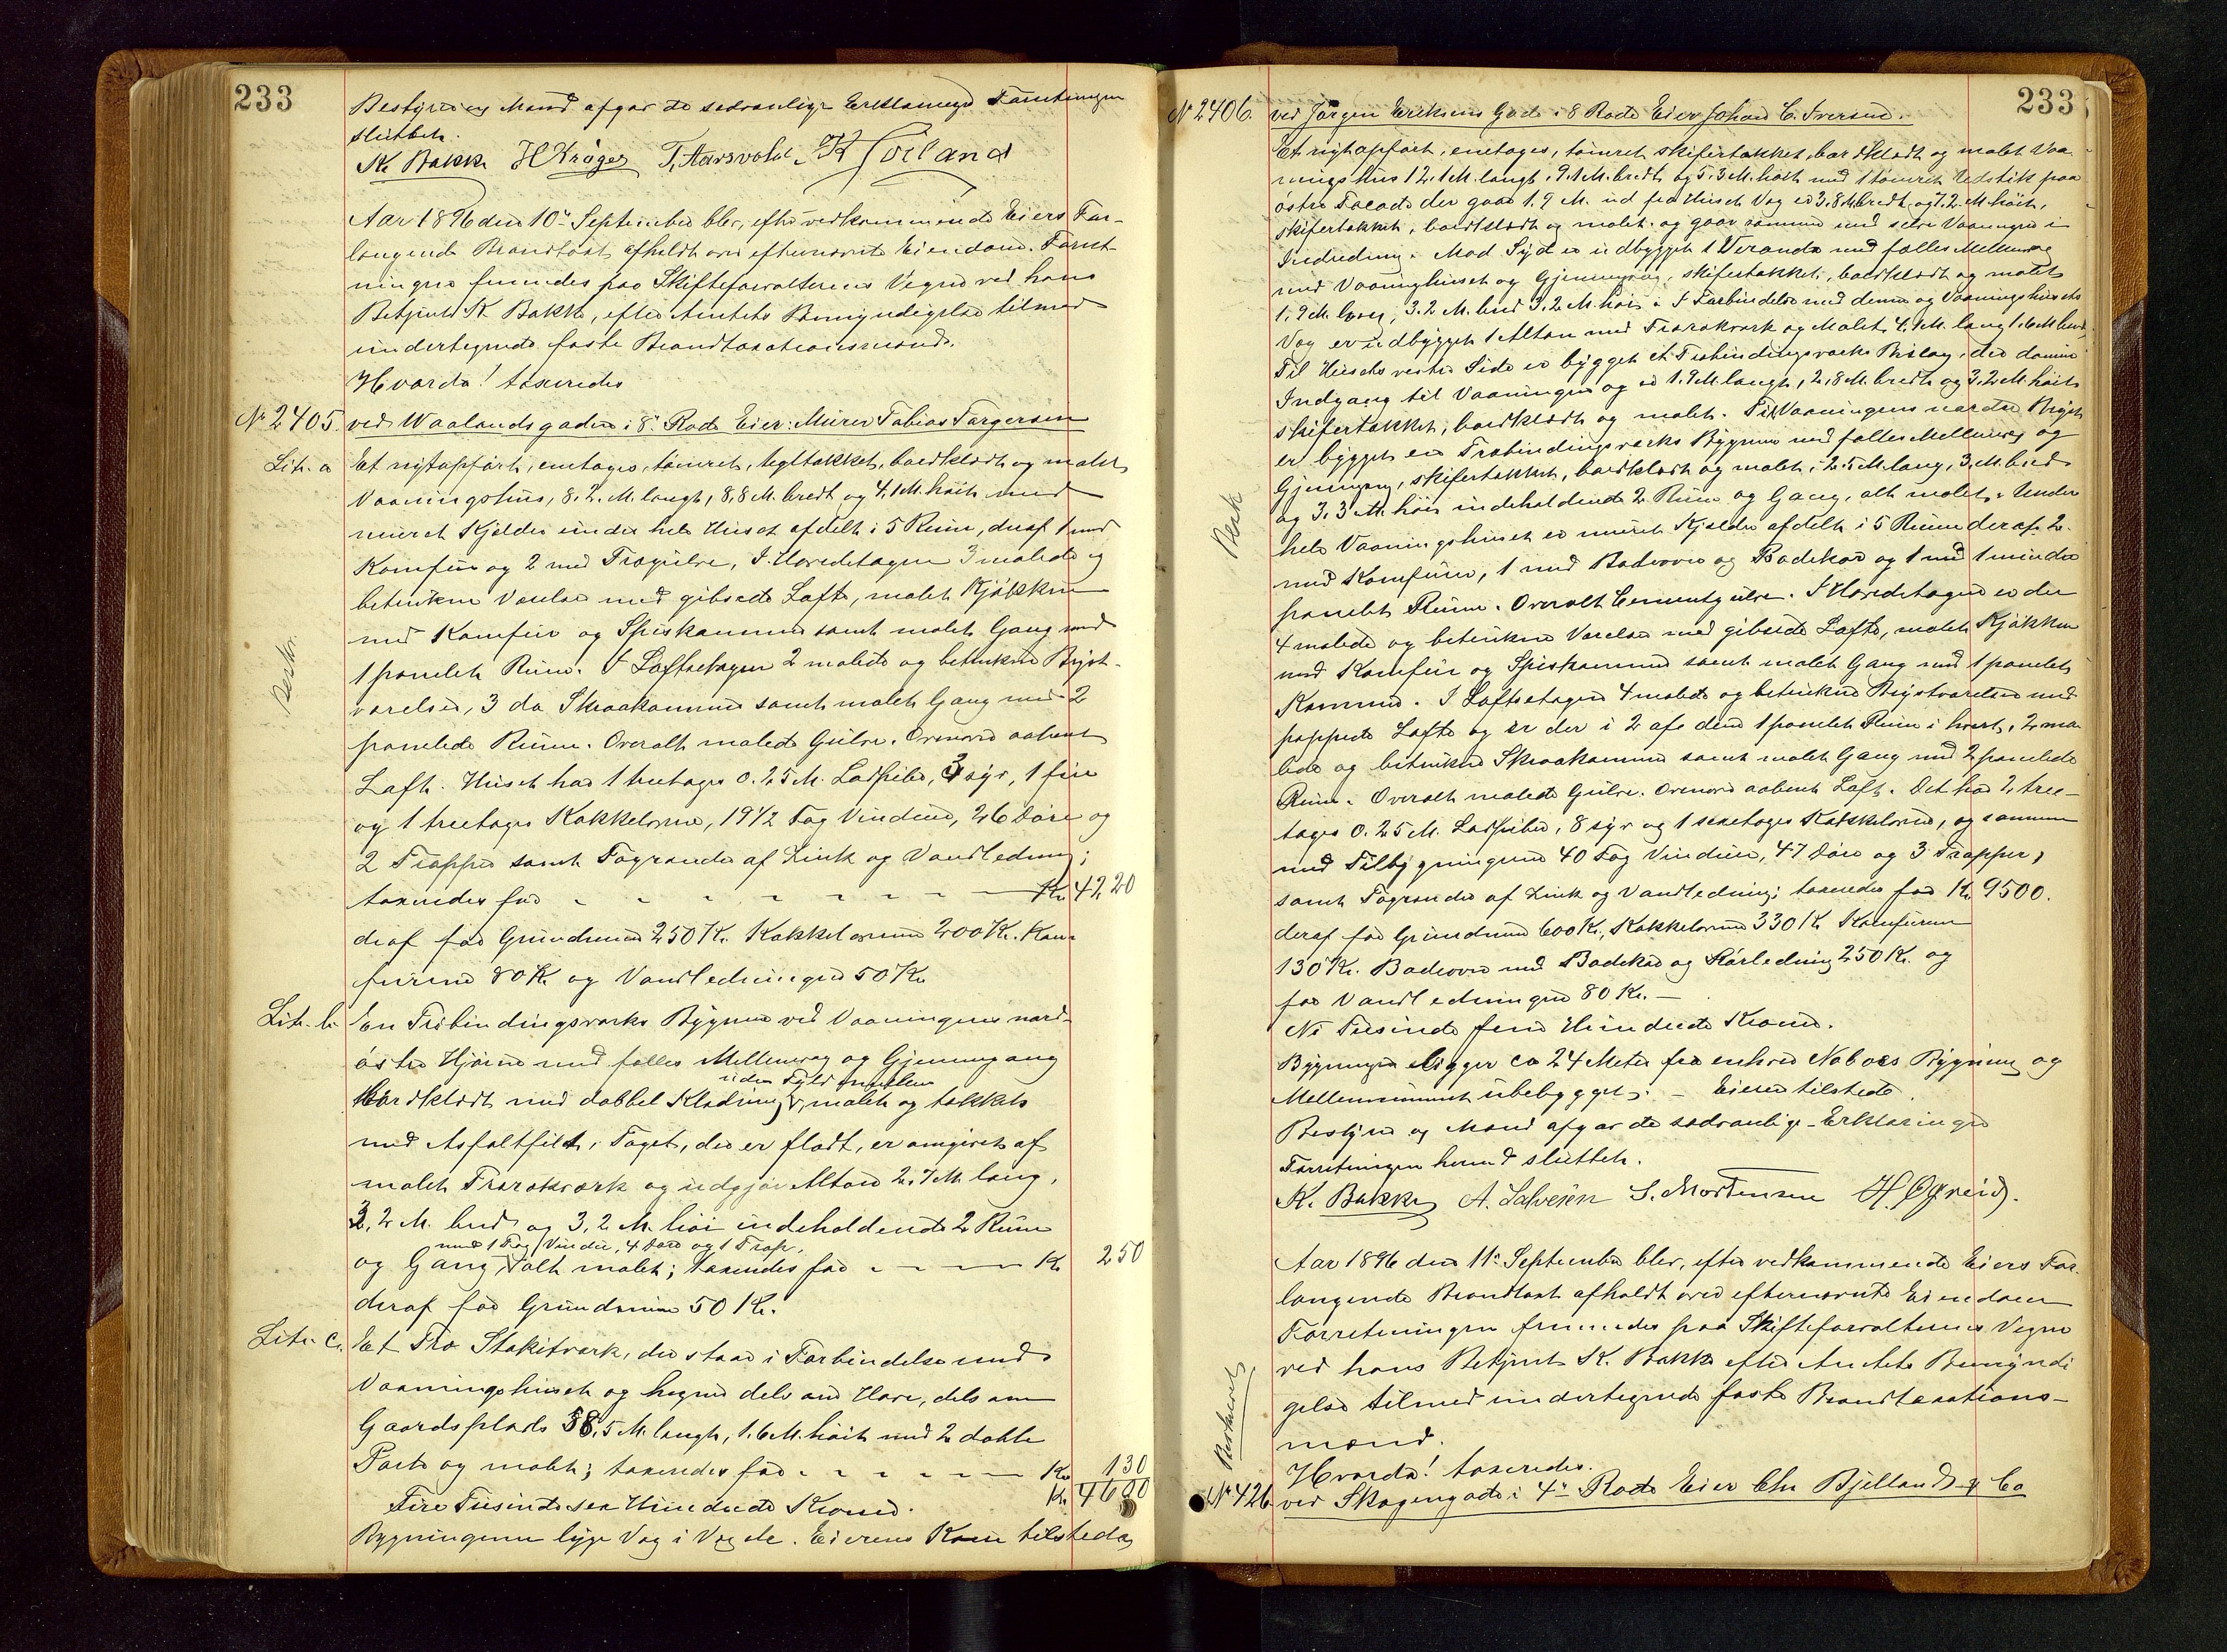 233
Bestyrer og Mænd afgav de sædvanlige Erklæringer Forretningen
sluttet.
K. Bakke H Krøger T. Aarsvold K Torland
Aar 1896 den 10de September blev, efter vedkommende Eiers For-
langende Brandtaxt afholdt over efternævnte Eiendom. Forret-
ningen fremmedes paa Skifteforvalterens Vegne ved hans
Betjent K. Bakke, efter Amtets Bemyndigelse tilmed
undertegnede faste Brandtaxationsmænd.
Hvorda! taxeredes
No 2405. ved Waalandsgaden i 8de Rode Eier: Murer Tobias Torgersen
Litr. a Et nyopført, enetages, tømret, tegltækket, bordklædt og malet
Vaaningshus, 8,2 M. langt, 8,8 M. bredt og 4,1 M. høit med
muret Kjelder under hele Huset afdelt i 5 Rum, deraf 1 med
Komfur og 2 med Trægulve, I Hovedetagen 3 malede og
betrukne Værelser med gibsede Lofte, malet Kjøkken
med Komfur og Spiskammer samt malet Gang med
1 panelet Rum. I Loftsetagen 2 malede og betrukne Bryst-
værelser, 3 do Skraakammere samt malet Gang med 2
panelede Rum. Overalt malede Gulve. Ovenover aabent
Loft. Huset har 1 treetages 0.25 M. Lodpibe, 3 syv, 1 fire
og 1 treetages Kakkelovne, 19 1/2 Fag Vinduer, 26 Døre og
2 Trapper samt Tagrender af Zink og Vandledning;
taxeredes for - - - - - - - Kr 4220
deraf for Grundmur 250 Kr. Kakkelovnene 200 Kr. Kom-
furene 80 Kr og Vandledningen 50 Kr
Litr. b. En Træbindingsværks Bygning ved Vaaningens nord-
østre Hjørne med fælles Mellemvæg og Gjennemgang
uden Fyld imellem
bordklædt med dobbel Klædning, malet og tækket
med Asfaltfilt, Taget, der er fladt, er omgivet af
malet Trærækværk og udgjør Altan 2.7 M. lang,
3,2 M. bred og 3,2 M. høi indeholdende 2 Rum
med 1 Fag Vindu, 4 Døre og 1 Trap.
og Gang, alt malet; taxeredes for - - - - Kr 250
deraf for Grundmur 50 Kr.
Litr. c. Et Træ Stakitværk, der staar i Forbindelse med
Vaaningshuset og hegner dels om Have, dels om
Gaardsplads 38,5 M. langt, 1.6 M. høit med 2 doble
Porte og malet; taxeredes for - - - - - Kr 130
Kr 4600
Fire Tusinde sex Hundrede Kroner.
Bygningerne ligge Væg i Væg de. Eierens Kone tilstede
Beskr.
233
No 2406. ved Jørgen Eriksens Gade i 8 Rode Eier Johan C. Iversen.
Et nyopført, enetages, tømret skifertækket, bordklædt og malet Vaa-
ningshus 12.1 M. langt, 9.1 M. bredt og 5,3 M. høit med 1 tømret Udstik paa
østre Facade der gaar 1.9 M. ud fra Husets Væg er 3,8 M. bredt og 7.2 M. høit,
skifertækket, bordklædt og malet og gaar sammen med selve Vaaningen i
Indredning. Mod Syd er udbygget 1 Veranda med fælles Mellemvæg
med Vaaningshuset og Gjennemgang, skifertækket, bordklædt og malet
1.9 M. lang, 3.2 M. bred 3,2 M. høi. I Forbindelse med denne og Vaaningshusets
Væg er udbygget 1 Altan med Trærækværk og Malet 4.1 M. lang 1.6 M bred
Til Husets vestre Side er bygget et Træbindingsværks Bislag, der danner
Indgang til Vaaningen og er 1.9 M. langt, 2,8 M. bredt og 3,2 M. høit
skifertækket, bordklædt og malet. Til Vaaningens nordre Bryst
er bygget en Træbindingsværks Bygning med fælles Mellemvæg og
Gjennemgang, skifertækket, bordklædt og malet, 2.5 M. lang, 3. M. bred
og 3,3 M. høi indeholdende 2 Rum og Gang, alt malet. Under
hele Vaaningshuset er muret Kjælder afdelt i 5 Rum deraf 2
med Komfurer, 1 med Badeovn og Badekar og 1 med 1 mindre
panelet Rum. Overalt Cementgulve. I Hovedetagen er der
4 malede og betrukne Værelser med gibsede Lofte, malet Kjøkken
med Komfur og Spiskammer samt malet Gang med 1 panelet
Kammer. I Loftsetagen 4 malede og betrukne Brystværelser med
pappede Lofte og er der i 2 af dem 1 panelet Rum i hvert, 2 ma-
lede og betrukne Skraakammer samt malet Gang med 2 panelede
Rum. Overalt malede Gulve. Ovenover aabent Loft. Det har 2 tree-
tages 0.25 M. Lodpiber, 8 syv og 1 sexetages Kakkelovne, og sammen
med Tilbygningerne 40 Fag Vinduer, 47 Døre og 3 Trapper,
samt Tagrender af Zink og Vandledning; taxeredes for Kr 9500.
deraf for Grundmur 600 Kr., Kakkelovne 330 Kr Komfurene
130 Kr. Badeovn med Badekar og Rørledning 250 Kr. og
for Vandledningen 80 Kr. —
Ni Tusinde fem Hundrede Kroner.
Bygningen ligger ca 24 Meter fra enhver Naboes Bygning og
Mellemrummet ubebygget. – Eieren tilstede.
Bestyrer og Mænd afgav de sædvanlige Erklæringer
Forretningen hermed sluttet.
K. Bakke A. Salvesen S. Mortensen H. Øgreid.
Aar 1896 den 11te September blev, efter vedkommende Eiers For-
langende Brandtaxt afholdt over efternævnte Eiendom
Forretningen fremmedes paa Skifteforvalterens Vegne
ved hans Betjent K. Bakke efter Amtets Bemyndi-
gelse tilmed undertegnede faste Brandtaxations-
mænd.
Hvorda! taxeredes.
No 426 ved Skagengade i 4de Rode Eier Chr Bjelland & Co
Besk